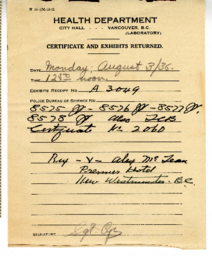 HEALTH DEPARTMENT
CITY HALL . . . VANCOUVER, B.C.
(LABORATORY)
CERTIFICATE AND EXHIBITS RETURNED.
DATE Monday, August 3/36.
TIME 12th noon
EXHIBITS RECEIPT NO. A 3049
POLICE BUREAU OF SCIENCE NO.
8575 - 8576 - 8577
8578 Also
Certificate No 2060
Rex -v- Alex McLean
Premier Hotel
New Westminster B.C.
SIGNATURE Sgt.